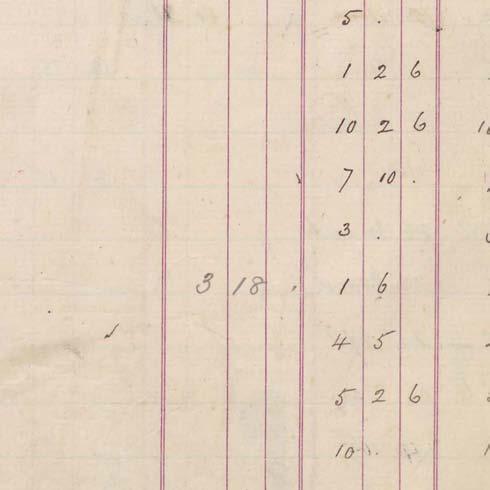 5 .
1 2 6
10 2 6
7 10 .
3 .
3 18 . 1 6
4 5
5 2 6
10 .